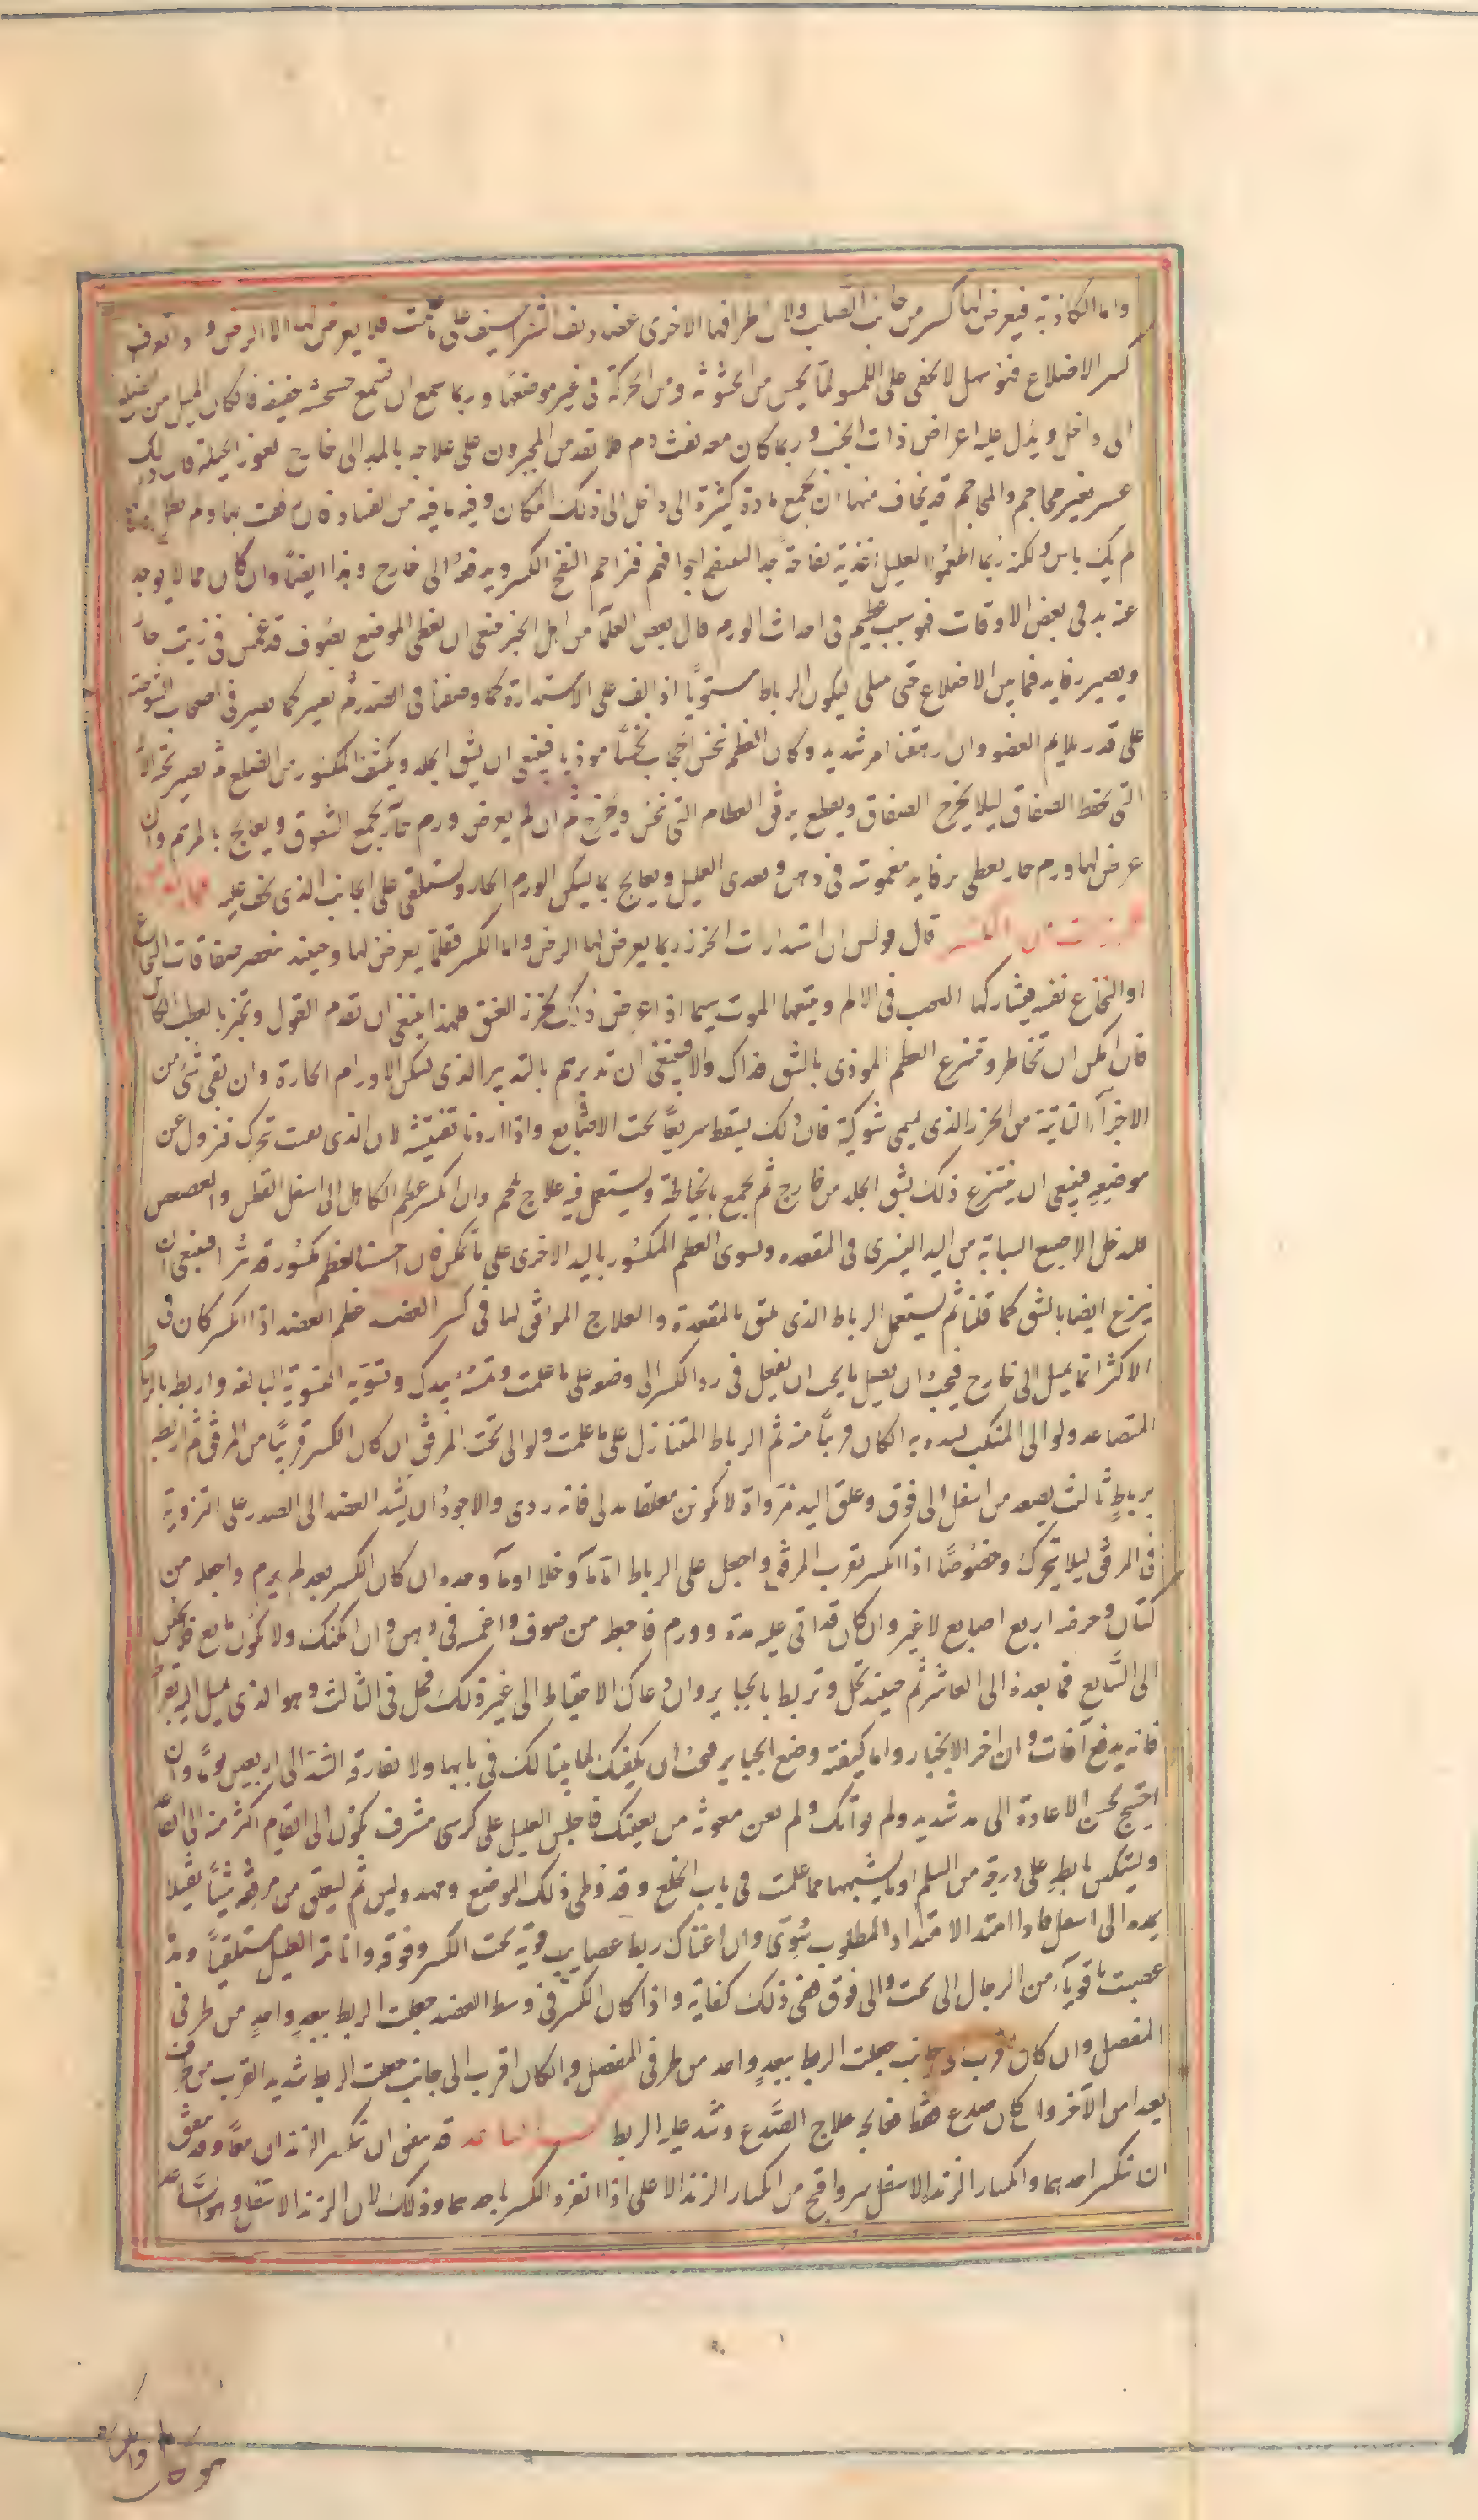 واما الكاذبة فيعرض لها كسر من جانب الصلب ولان طرافها الاخرى غضاريف الشراسيف على ما علمت فلا يعرض لها الا الرض و تعرف
كسر الاضلاع فهو سهل لا يخفى على اللمس لما يحس من الخشونة ومن الحركة فى غير موضعها وربما سمع ان تسمع خشخشة خفيفة فان كان الميل من
الى داخل ويدل عليه اعراض ذات الجنب وربما كان معه نفث دم فلا تقدمن المجبرون على علاجه بالمد الى خارج لعوز الحيلة فان ذلك
عسر بغير محاجم والمحاجم قد يخاف منها ان تجمع مادة كثيرة الى داخل الى ذلك المكان وفيه ما فيه من الفساد فان
لم يكن باس ولكنه ربما اطعموا العليل اغذية نفاخة جدا لينتفخ اجوافهم فزاحم النفخ الكسر ويدفعه الى خارج وهذا ايضا وان كان مما لا يوجد
عنه بد فى بعض الاوقات فهو سبب عظيم فى احداث الورم قال بعض العلماء من اهل الجبر ينبغى ان يغطى الموضع بصوف قد غمس فى زيت حار
ويصير رفايد فيما بين الاضلاع حتى يمتلى ليكون الرباط مستويا اذا لف على الاستدارة كما وصفنا فى الصدر ثم يصير كما يصير فى اصحاب الشوصة
على قدر يلايم العضو وان رهقنا امر شديد وكان العظم ينخس الحجاب نخسا موذيا فينبغى ان يشق الجلد ويكشف المكسور من الضلع ثم يصير تحته الآلة
التى تحفظ الصفاق ليلا يخرج الصفاق ويقطع برفق العظام التى تنخس ويخرج ثم ان لم يعرض ورم حار يجمع الشقوق ويعالج بالمرهم وان
عرض لها ورم حار يغطى برفايد مغموسة فى دهن ويغذى العليل ويعالج بما يسكن الورم الحار ويستلقى على الجانب الذى يخف عليه
قال بولس ان استدارات الخرز ربما يعرض لها الرض واما الكسر فقلما يعرض لها وحينئذ تنعصر صفاقات النخاع
او النخاع نفسه فيشاركها العصب فى الالم ويتبعها الموت سيما اذا عرض ذلك لخرز العنق فلهذا ينبغى ان تقدم القول وتخبر بالعطب الكاين
فان امكن ان تخاطر وتنزع العظم الموذى بالشق فذاك والا فينبغى ان تدبرهم بالتدبير الذى يسكن الاورام الحارة وان بقى شئ من
الاجزآء الناتية من الخرز الذى يسمى شوكية فان ذلك يسقط سريعا تحت الاصابع واذا اردنا تفتيشه لان الذى تفتت تحرك فنزول عن
موضعه فينبغى ان ينتزع ذلك بشق الجلد من خارج ثم يجمع بالخياطة ويستعمل فيه علاج ملحم وان انكسر عظم الكاهل الى اسفل القطن والعصعص
فلتدخل الاصبع السبابة من اليد اليسرى فى المقعدة ويسوى العظم المكسور باليد الاخرى على ما تمكن فان احسسنا بعظم مكسور قد تبرأ فينبغى ان
ينزع ايضا بالشق كما قلنا ثم يستعمل الرباط الذى يليق بالمقعدة والعلاج الموافق لها فى كسر العضد عظم العضد اذا انكسر كان فى
الاكثر انما يميل الى خارج فيجب ان تفعل ما يجب ان يفعل فى رد الكسر الى وضعه على ما علمت وتمسه بيدك وتسويه التسوية البالغه واربطه بالرباط
المتصاعد ولو الى المنكب تشده به ان كان قريبا منه ثم الرباط المتنازل على ما علمت ولو الى تحت المرفق ان كان الكسر قريبا من المرفق ثم اربطه
برباط ثالث يصعد من اسفل الى فوق وعلق اليد مزواة لا تكونن معلقا مدلى فانه ردى والاجود ان يشد العضد الى الصدر على التزوية
فى المرفق ليلا يتحرك وخصوصا اذا انكسر بقرب المرفق واجعل على الرباط امّا مآ وخلا او مآ وحده ان كان الكسر بعد لم يرم واجعله من
كتان وعرضه اربع اصابع لا غير وان كان قد اتى عليه مدة وورم فاجعله من صوف واغمسه فى دهن وان امكنك ولا يكون مانع فلا تحلن
الى السابع فما بعده الى العاشر ثم حينئذ تحل وتربط بالجباير وان دعاك الاحتياط الى غير ذلك فحل فى الثالث وهو الذى يميل اليه بقراط
فانه يدفع آفات وان اخر الانجبار واما كيفية وضع الجباير فيجب ان يكفيك لما بينا لك فى بابها ولا تفارقه الشد الى اربعين يوما وان
احتيج لحسن الاعادة الى مد شديد ولم يواتك ولم تعن معونة من يعينك فاجلس العليل على كرسى مشرف يكون الى القيام اكثر منه الى القعود
وليتكىء بابطه على درجة من السلم او ما يشبهها مما علمت فى باب الخلع وقد وطى ذلك الموضع ومهد ولين ثم ليعلق من مرفقه شيئا ثقيلا
يمده الى اسفل فاذا امتد الامتداد المطلوب سُوّى وان اغناك ربط عصايب قوية تحت الكسر وفوقه وانامة العليل مستلقيا ومد
عصبت باقويآء من الرجال الى تحت والى فوق ففى ذلك كفاية واذا كان الكسر فى وسط العضد جعلت الربط ببعد واحد من طرفى
المفصل وان كان اقرب جانب جعلت الربط ببعد واحد من طرفى المفصل وان كان اقرب الى جانب جعلت الربط شديد القرب من
بعدا من الآخر وان كان صدع هناك فعالجه علاج الصدع وشد عليه الربط كسر الساعد قد يتفق ان تنكسر الزندان معا وقد يتفق
ان تنكسر احدهما وانكسار الزند الاسفل شر واقبح من انكسار الزند الاعلى اذا انفرد الكسر باحدهما وذلك لان الزند الاسفل وهو الساعد